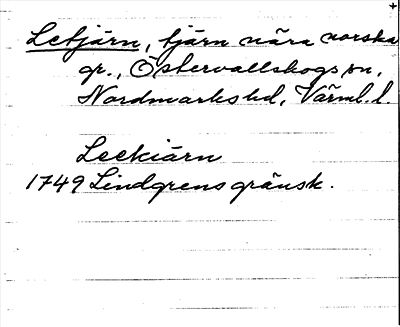 Letjärn, tjärn nära norska
gr., Östervallskogs sn,
Nordmarks hd, Värml. l.
Leekiärn
1749 Lindgrens gränsk.